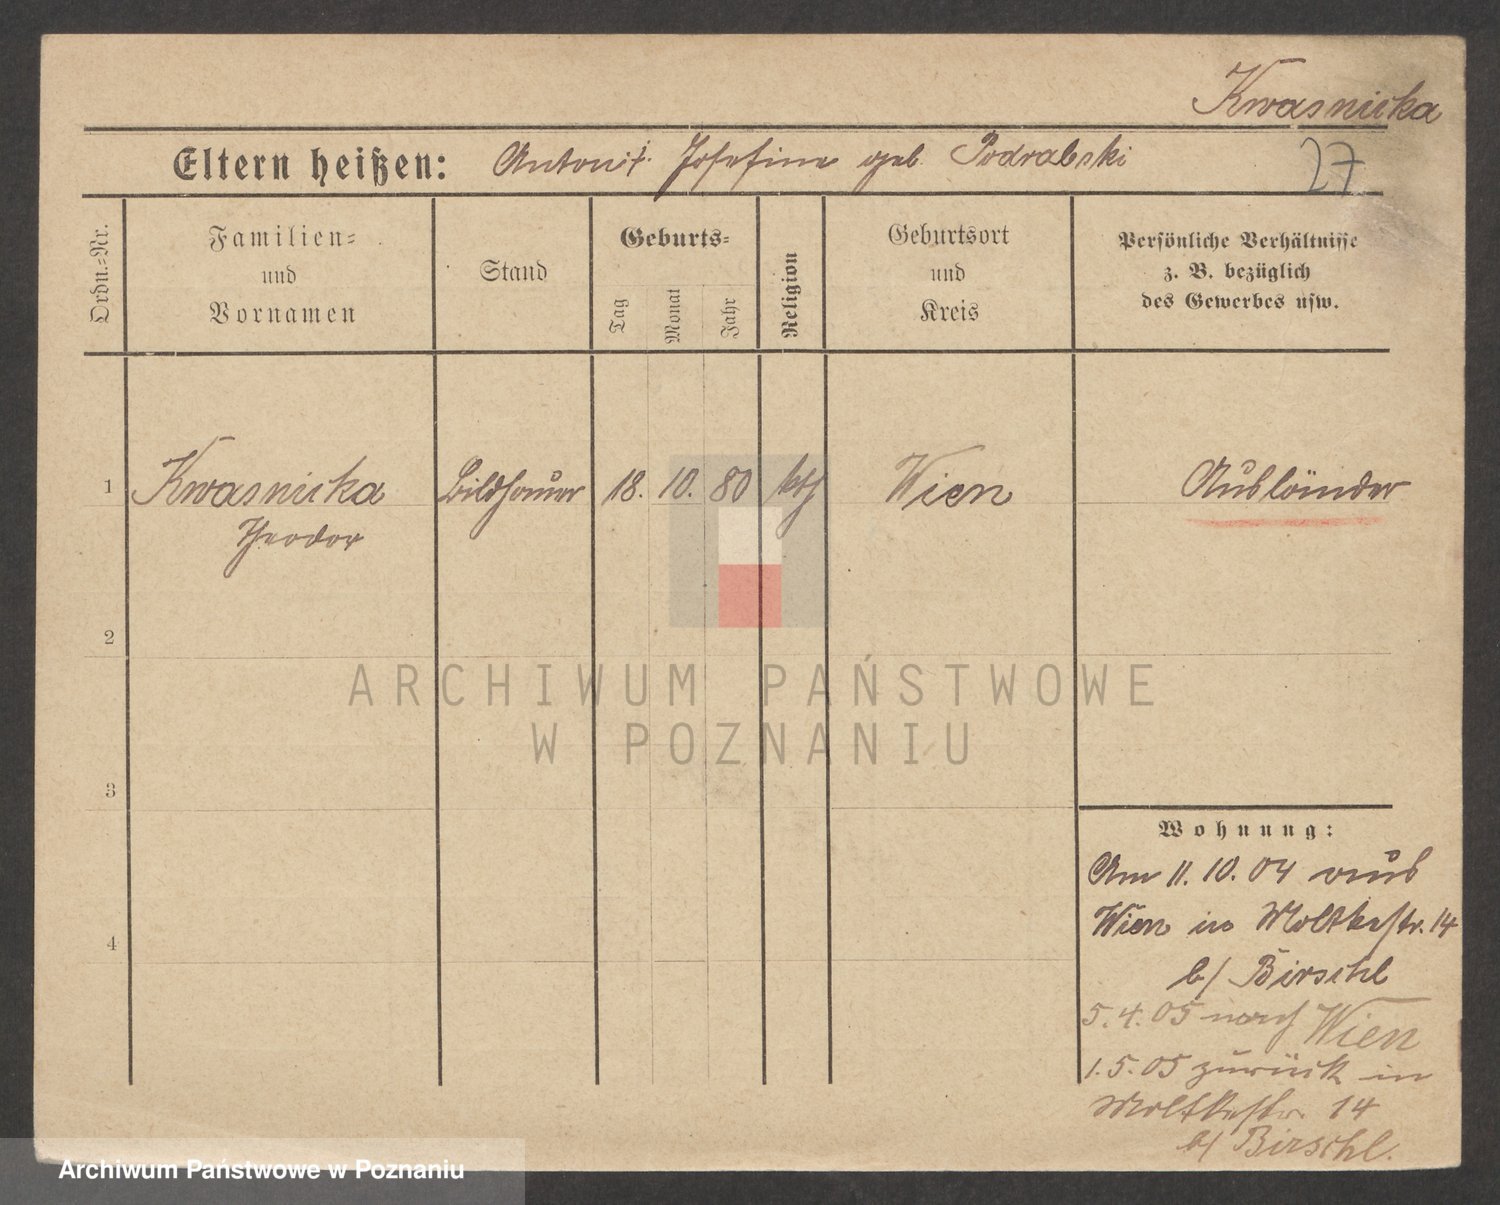 Kwasnicka
Eltern heißen: Anton u. Josefine geb. Podrabski
27
Ordn.=Nr.
Familien=
und
Vornamen
Stand
Geburts=
Tag
Monat
Jahr
Religion
Geburtsort
und
Kreis
Persönliche Verhältnisse
z. B. bezüglich
des Gewerbes usw.
1 Kwasnicka Bildhauer 18. 10. 80 kth Wien Ausländer
Theodor
2
3
4
Wohnung:
Am 11. 10. 04 aus
Wien in Moltkestr. 14
b/ Birschl
5. 4. 05 nach Wien
1. 5. 05 zurück in
Moltkestr. 14
b/ Birschl.
ARCHIWUM PAŃSTWOWE
W POZNANIU
Archiwum Państwowe w Poznaniu